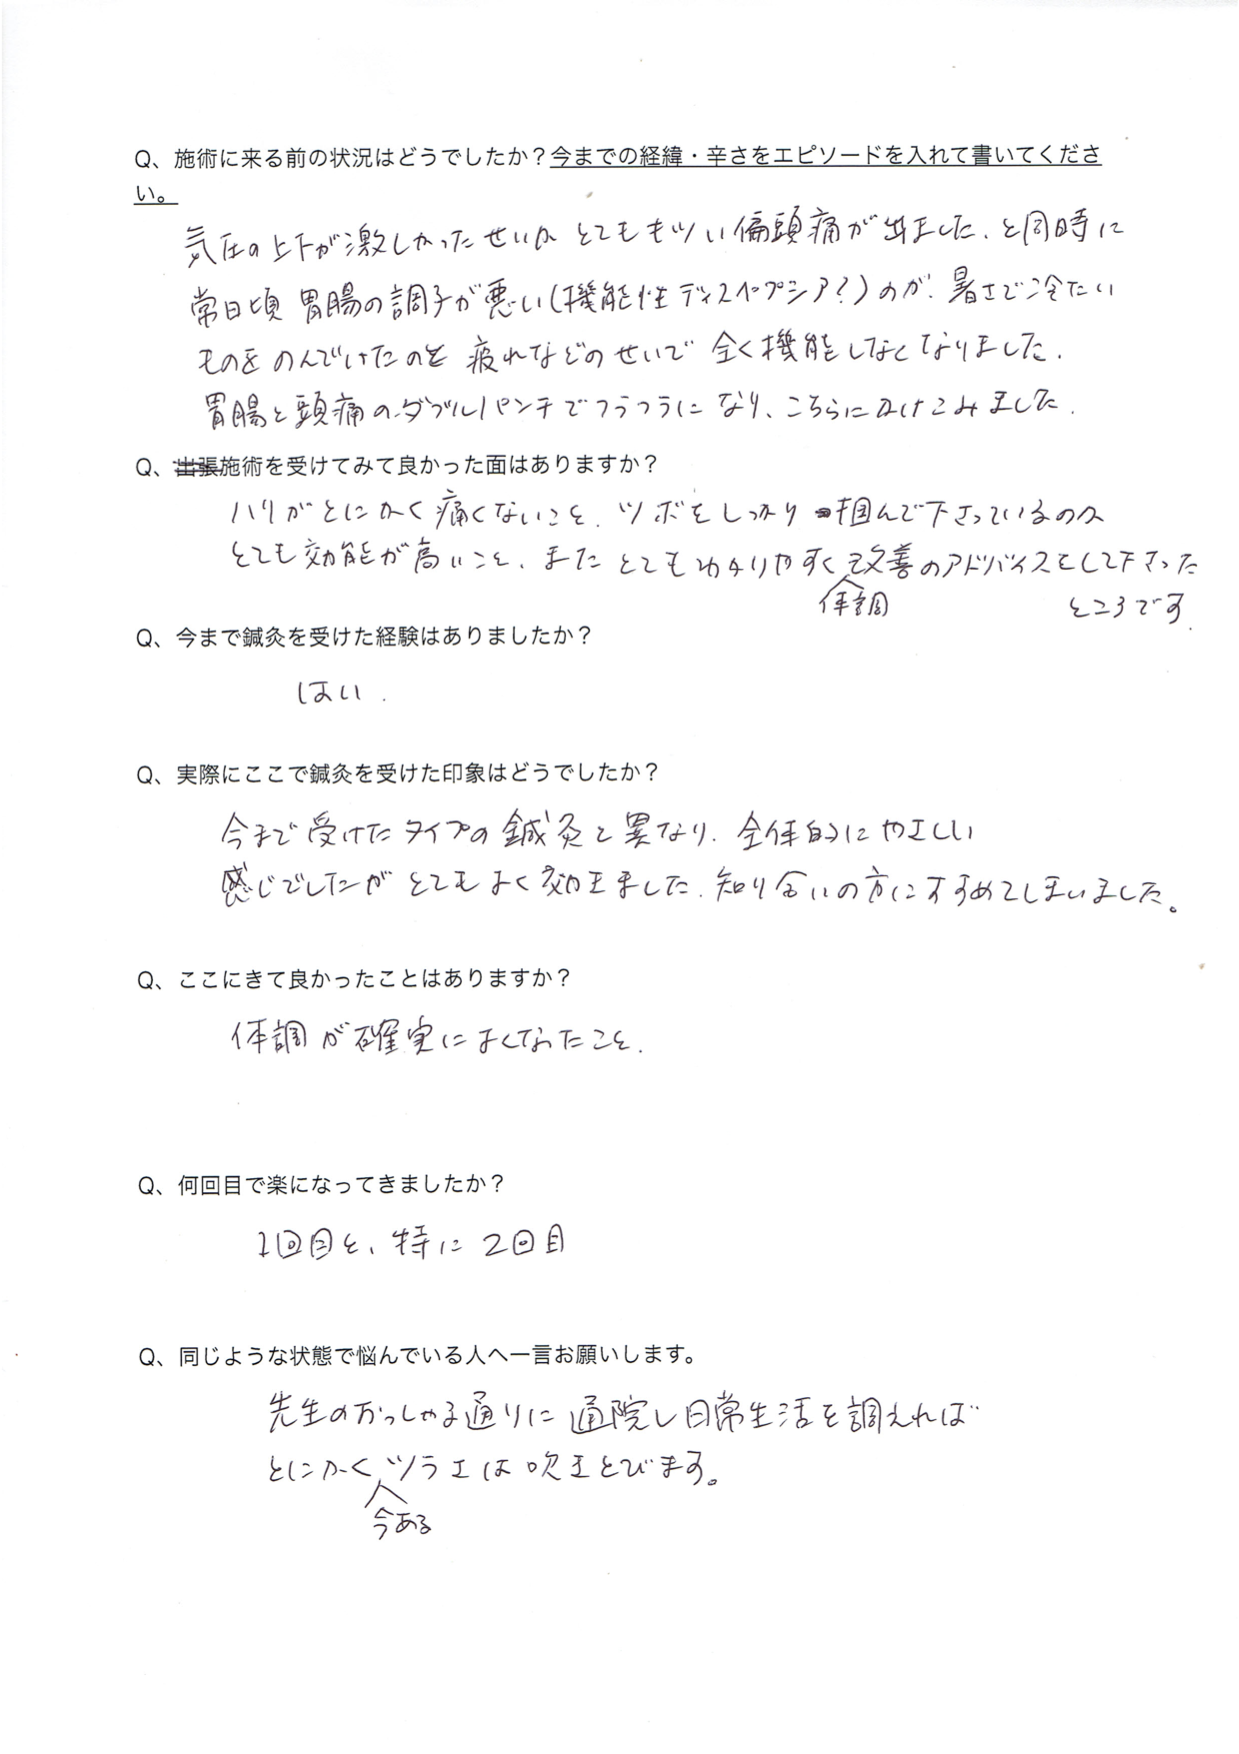 Q、施術に来る前の状況はどうでしたか？今までの経緯・辛さをエピソードを入れて書いてくださ
い。
気圧の上下が激しかったせいか とてもキツい偏頭痛が出ました、と同時に
常日頃 胃腸の調子が悪い（機能性ディスペプシア？）のが、暑さで冷たい
ものをのんでいたのと 疲れなどのせいで 全く機能しなくなりました。
胃腸と頭痛のダブルパンチでフラフラになり、こちらにかけこみました。
Q、出張施術を受けてみて良かった面はありますか？
ハリがとにかく痛くないこと。ツボをしっかり掴んで下さっているのか
とても効能が高いこと、また とてもわかりやすく改善のアドバイスをして下さった
体調 ところです。
Q、今まで鍼灸を受けた経験はありましたか？
はい。
Q、実際にここで鍼灸を受けた印象はどうでしたか？
今まで受けたタイプの鍼灸と異なり、全体的にやさしい
感じでしたが とてもよく効きました。知り合いの方にすすめてしまいました。
Q、ここにきて良かったことはありますか？
体調が確実によくなったこと。
Q、何回目で楽になってきましたか？
1回目と、特に2回目
Q、同じような状態で悩んでいる人へ一言お願いします。
先生のおっしゃる通りに通院し日常生活を調えれば
とにかくツラさは吹きとびます。
今ある